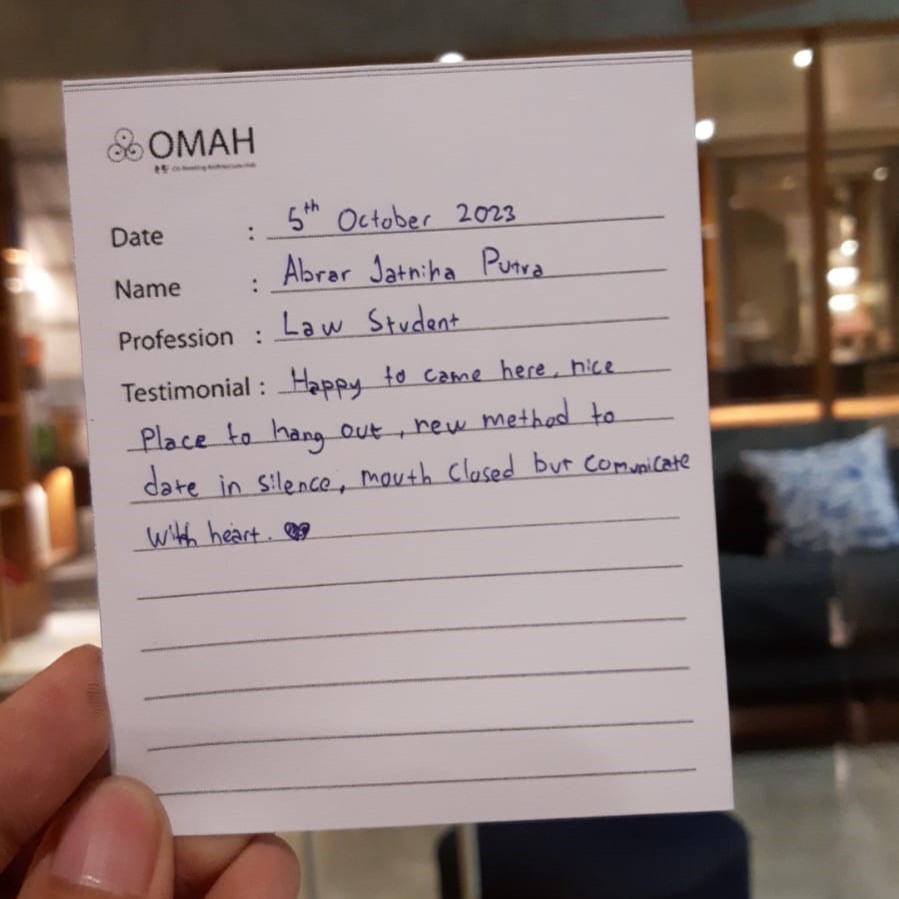 OMAH
Co Reading Architecture Hub
Date : 5th October 2023
Name : Abrar Jatniha Putra
Profession : Law Student
Testimonial : Happy to came here, nice
Place to hang out, new method to
date in silence, mouth closed but comunicate
with heart.